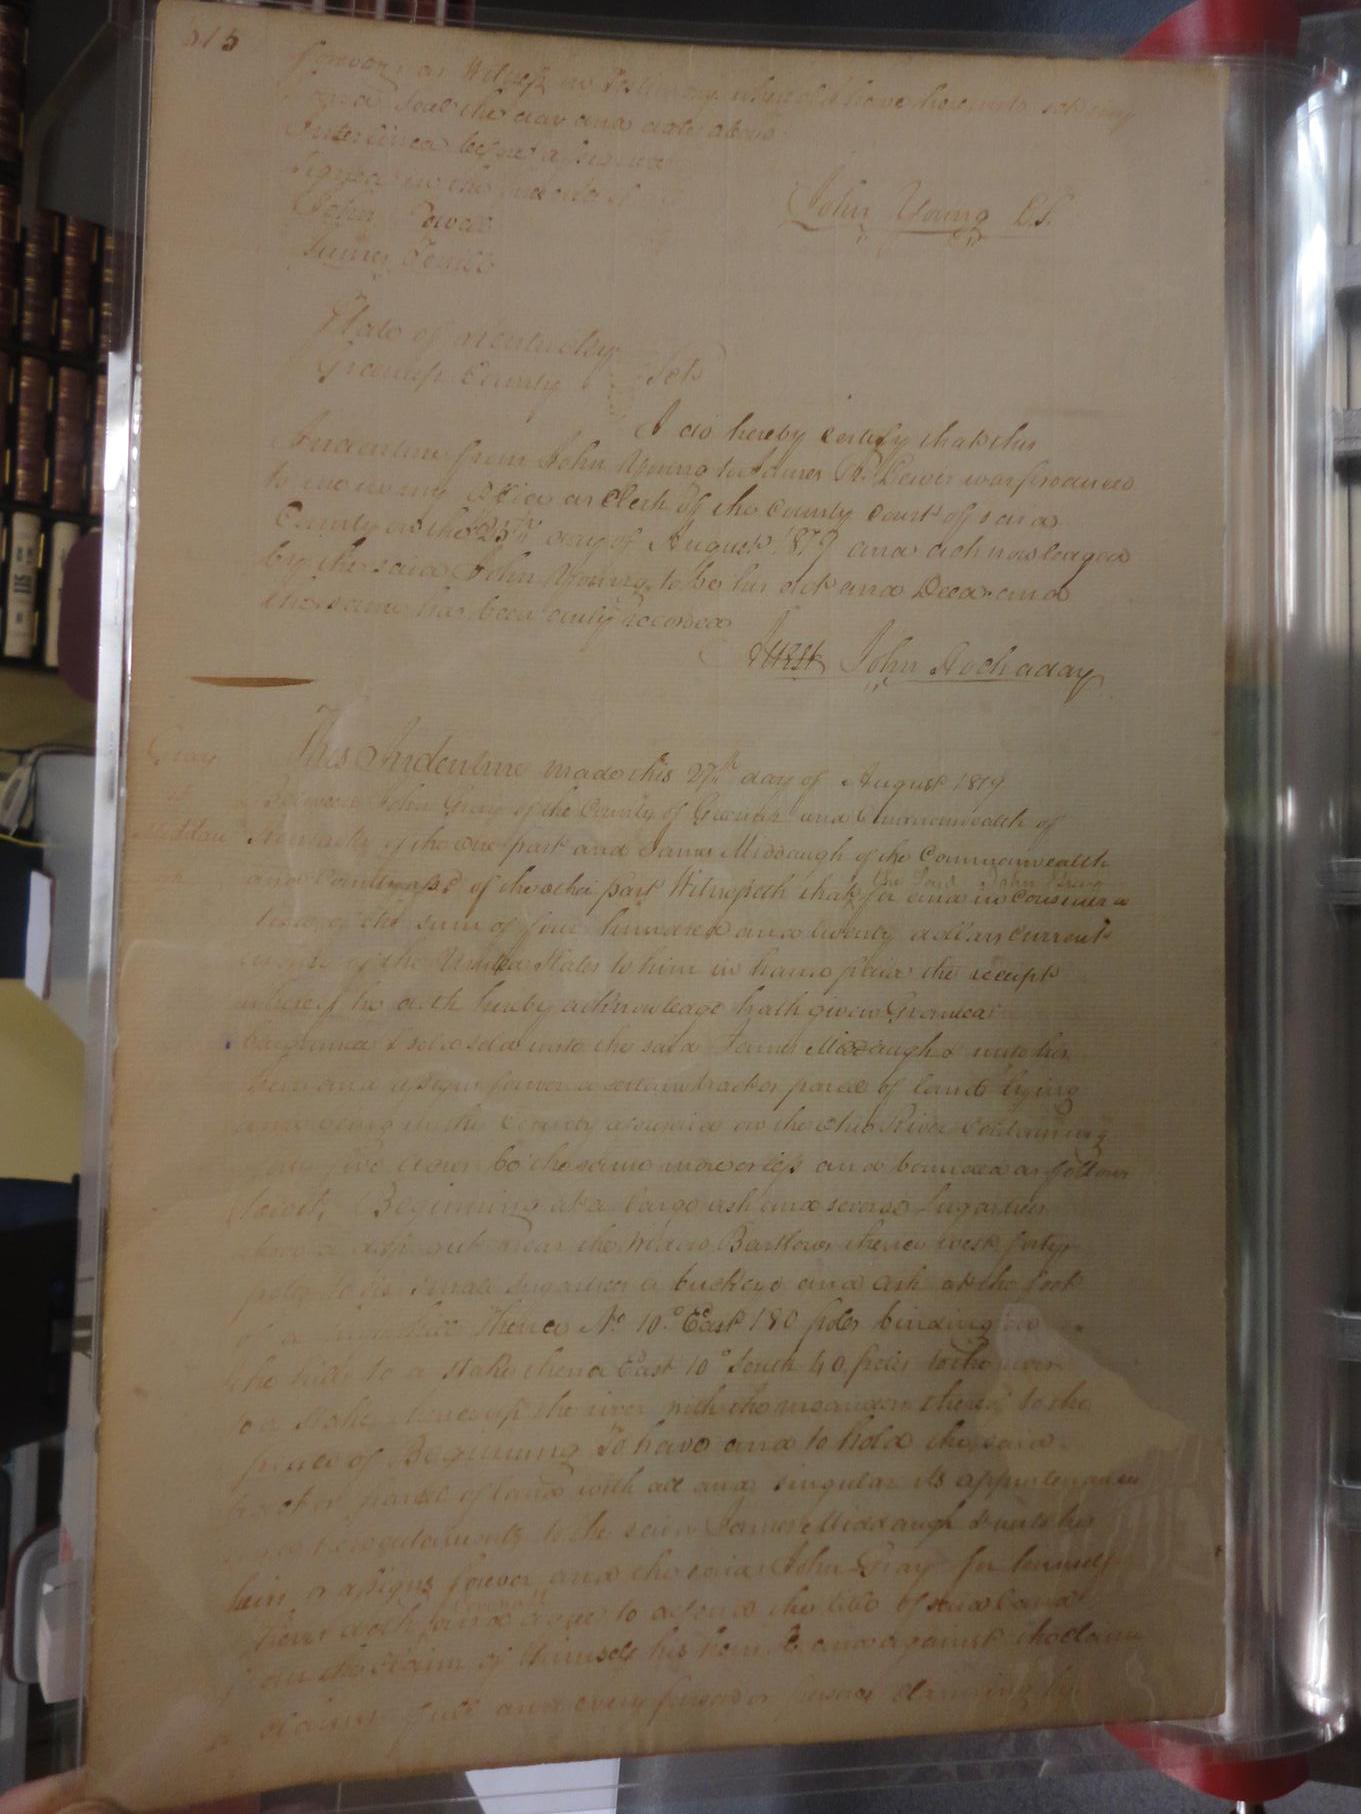 forever, as Witness in Testimony whereof I have hereunto set my
and Seal the day and date above
Interlined before assigned
Signed in the presence of
John Powell
James
John Young L.S.
State of Kentucky
Greenup County Sct
I do hereby certify that this
Indenture from John Young to James was produced
to me in my office as Clerk of the County Court of said
County on the 25th day of August 1819 and acknowledged
by the said John Young to be his Act and Deed and
the same has been duly recorded
Attest John Hockaday
Gray
This Indenture made this 27th day of August 1819
Between John Gray of the County of Greenup and Commonwealth of
Kentucky of the one part and James Middaugh of the Commonwealth
the said John Gray
and County of the other part Witnesseth that for and in consider a
tion of the sum of four hundred and twenty dollars current
money of the United States to him in hand paid the receipt
whereof he doth hereby acknowledge hath given Granted
bargained & sold unto the said James Middaugh & unto his
heirs and assigns forever a certain tract or parcel of land lying
and being in the County aforesaid on the Ohio River Containing
five acres be the same more or less and bounded as follows
(towit, Beginning at a large ash and several Sugartrees
above a near the Widow Bartlows thence west forty
poles to six small sugartrees a buckeye and ash at the foot
of a thence No 10° East 180 poles binding on
the hill to a stake thence East 10° South 40 poles to the river
to a stake thence up the river with the meanders thereof to the
place of Beginning To have and to hold the said
tract or parcel of land with all and singular its appurtenances
to the said James Middaugh & unto his
heirs & assigns forever and the said John Gray for himself
heirs doth covenant and agree to defend the title of said land
from the claim of himself his heirs & and against the claim
or claims of all and every person or persons claiming by